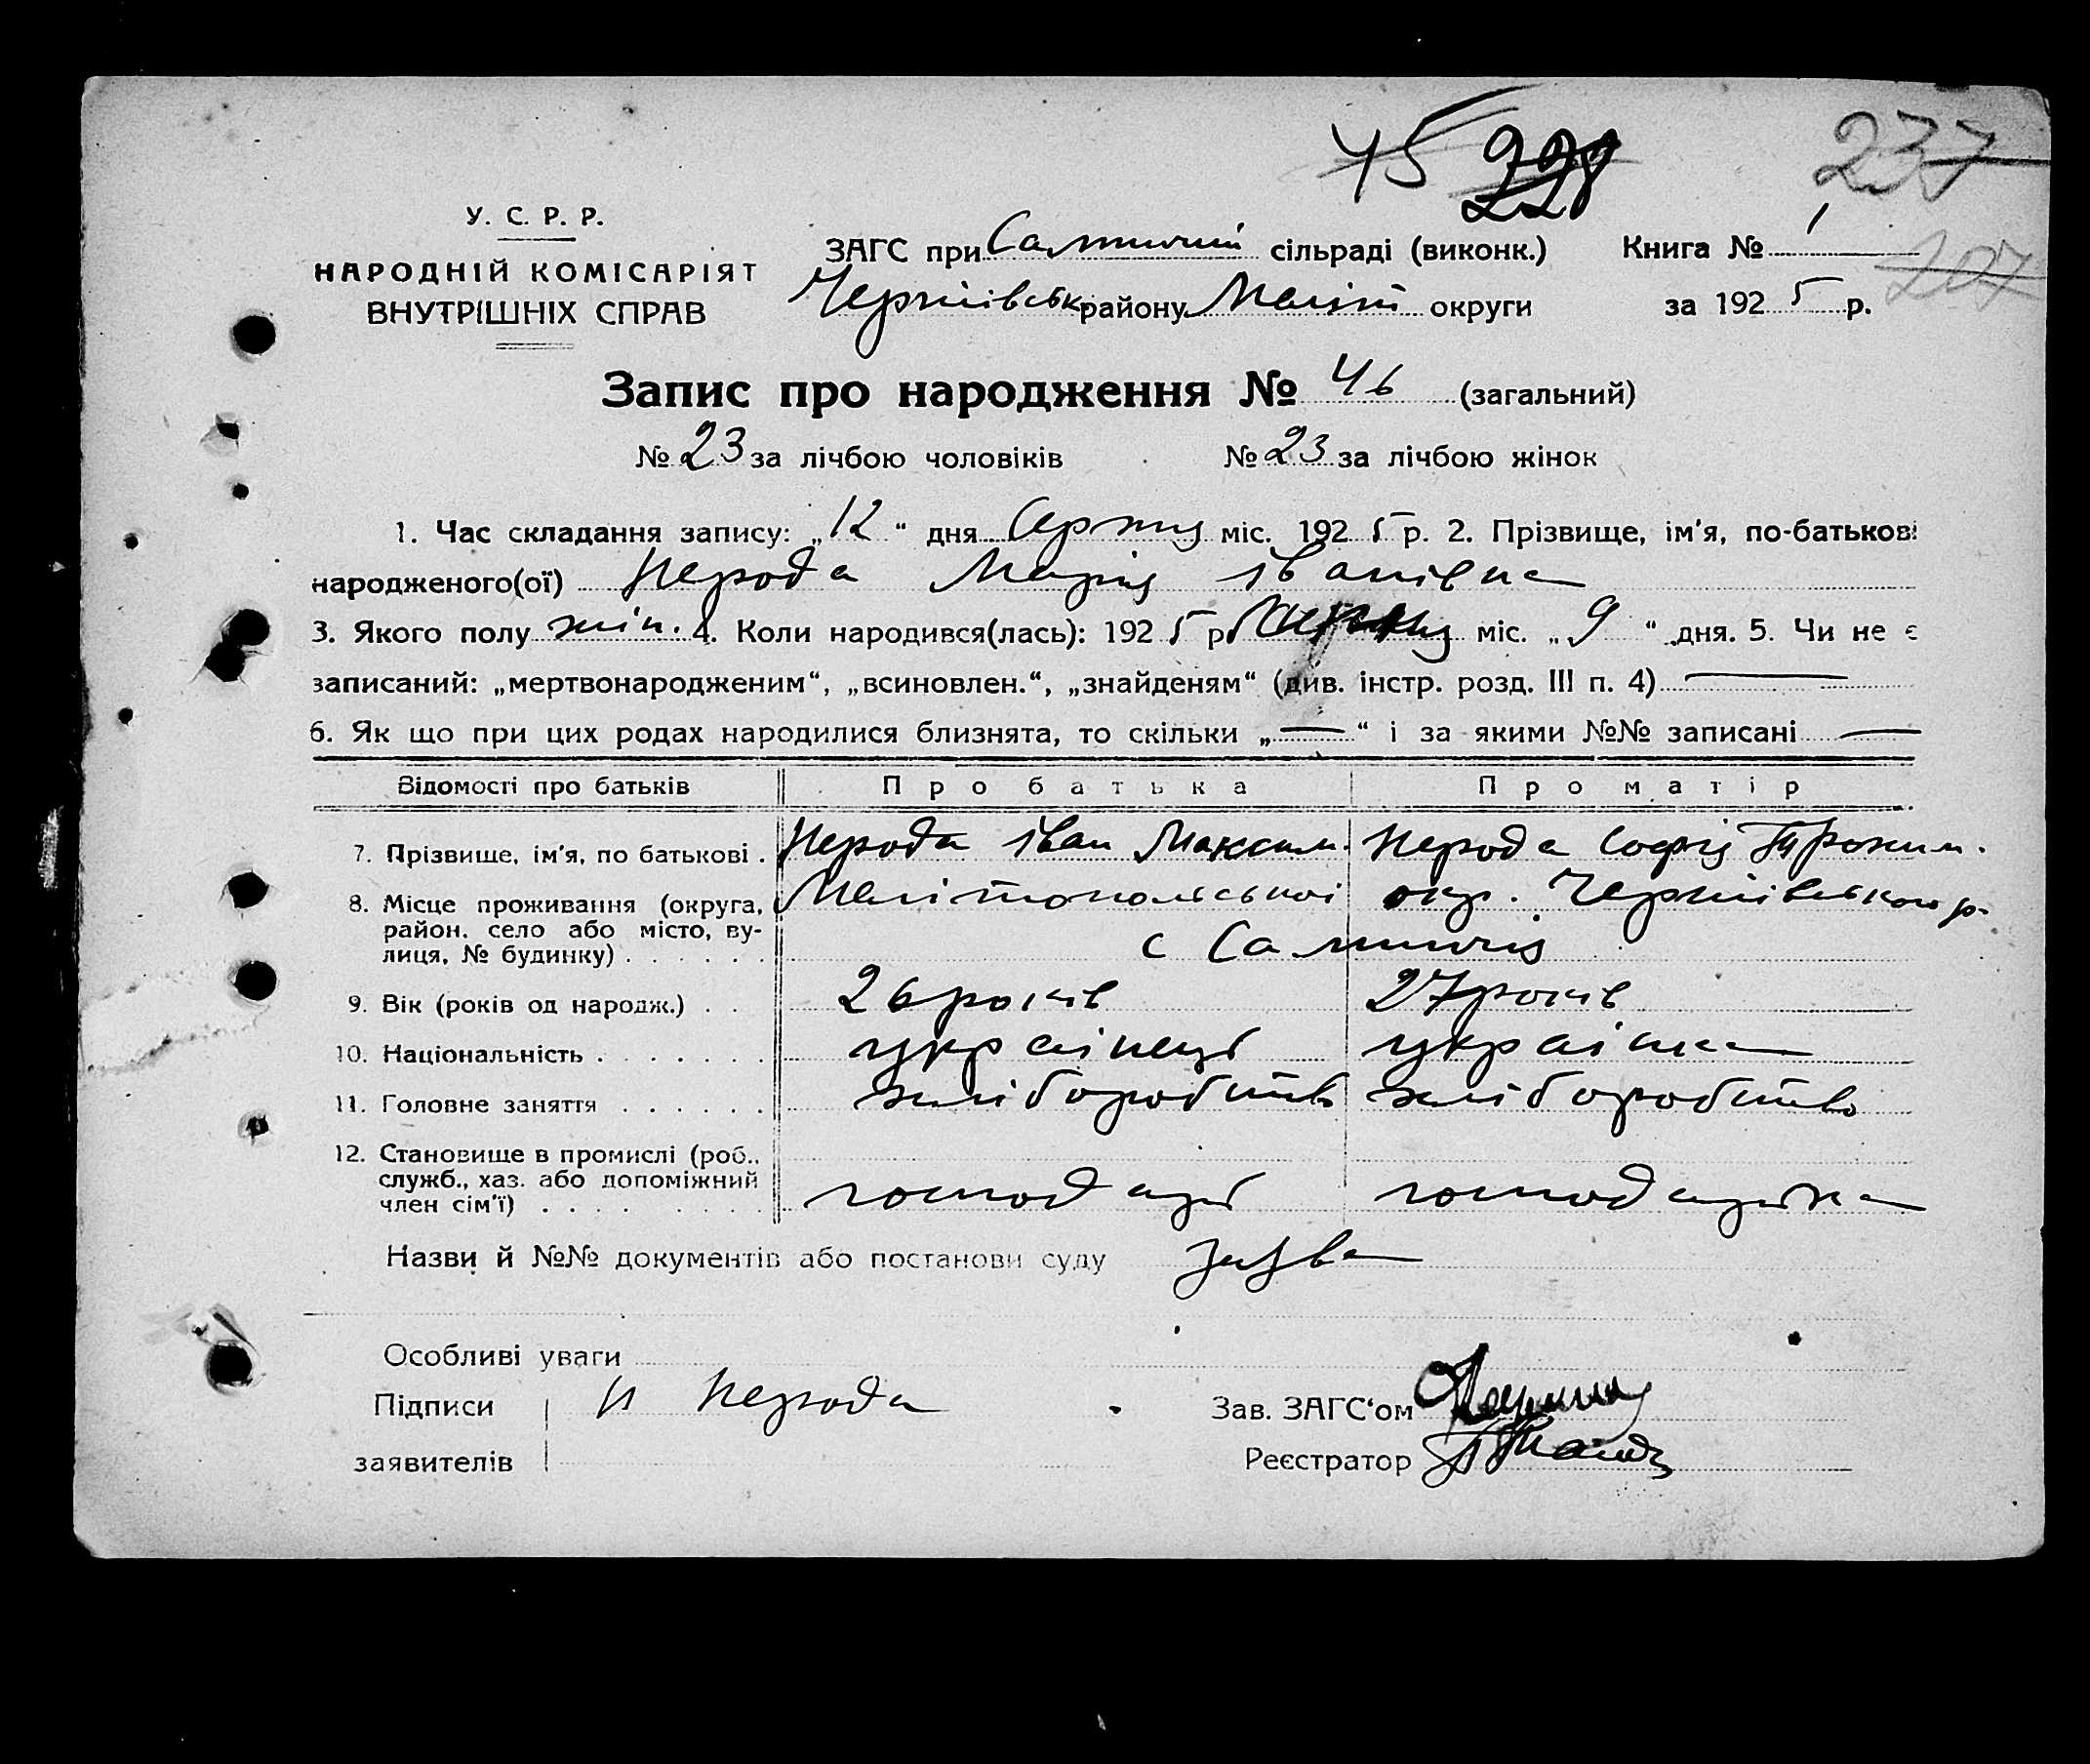 45 228 237
У. С. Р. Р.
НАРОДНІЙ КОМІСАРІЯТ
ВНУТРІШНІХ СПРАВ
ЗАГС при Салтичий сільраді (виконк.) Книга № 1
207
Чернігівськ району Меліт округи за 1925 р.
Запис про народження № 46 (загальний)
№ 23 за лічбою чоловіків № 23 за лічбою жінок
1. Час складання запису: „12“ дня Серпня міс. 1925 р. 2. Прізвище, ім'я, по-батькові
народженого(ої) Нерода Марія Іванівна
3. Якого полу жін. 4. Коли народився(лась): 1925 р. Серпня міс. „9“ дня. 5. Чи не є
записаний: „мертвонародженим“, „всиновлен.“, „знайденям“ (див. інстр. розд. III п. 4) —
6. Як що при цих родах народилися близнята, то скільки „—“ і за якими №№ записані —
Відомості про батьків Про батька Про матір
7. Прізвище, ім'я, по батькові . Нерода Іван Максим. Нерода Софія Трохим.
8. Місце проживання (округа, район, село або місто, вулиця, № будинку) . . . . . . Мелітопольської окр. Чернігівського р.
с Салтичія
9. Вік (років од народж.) . . 26 років 27 років
10. Національність . . . . . . . українець українка
11. Головне заняття . . . . . . хліборобство хліборобство
12. Становище в промислі (роб., служб., хаз. або допоміжний член сім'ї) . . . . . . . . господарь господарька
Назви й №№ документів або постанови суду заява
Особливі уваги
Підписи И Нерода Зав. ЗАГС'ом
заявителів Реєстратор